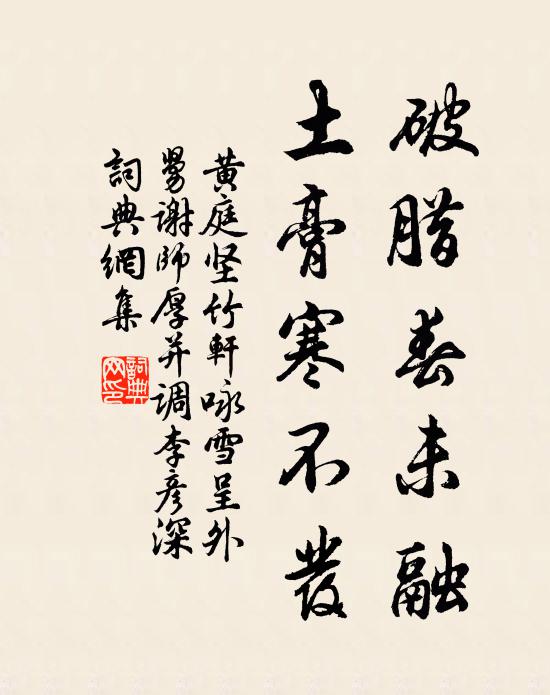 破腊春未融
土膏寒不發
黄庭坚竹軒咏雪呈外
舅谢師厚并调李彦深
詞典網集
詞典
网印